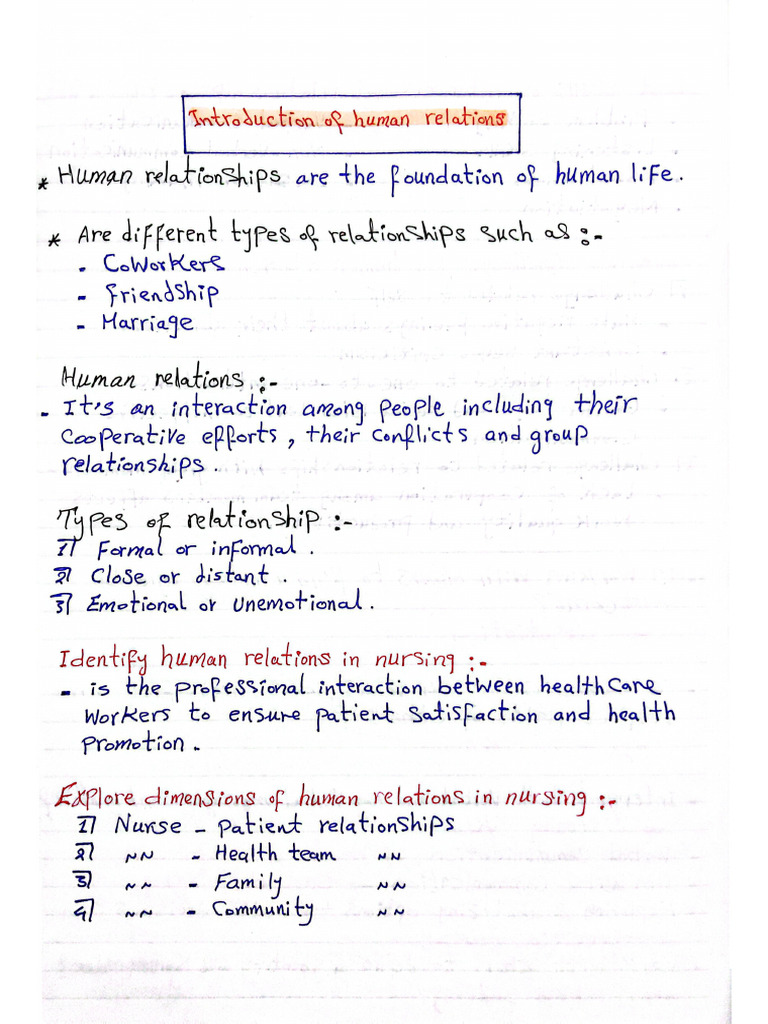 Introduction of human relations
* Human relationships are the foundation of human life.
* Are different types of relationships such as :-
- CoWorkers
- friendship
- Marriage
Human relations :-
- It's an interaction among people including their
cooperative efforts, their conflicts and group
relationships.
Types of relationship :-
1] Formal or informal.
2] Close or distant.
3] Emotional or unemotional.
Identify human relations in nursing :-
- is the professional interaction between health care
workers to ensure patient satisfaction and health
promotion.
Explore dimensions of human relations in nursing :-
1] Nurse - patient relationships
2] ~~ - Health team ~~
3] ~~ - Family ~~
4] ~~ - Community ~~